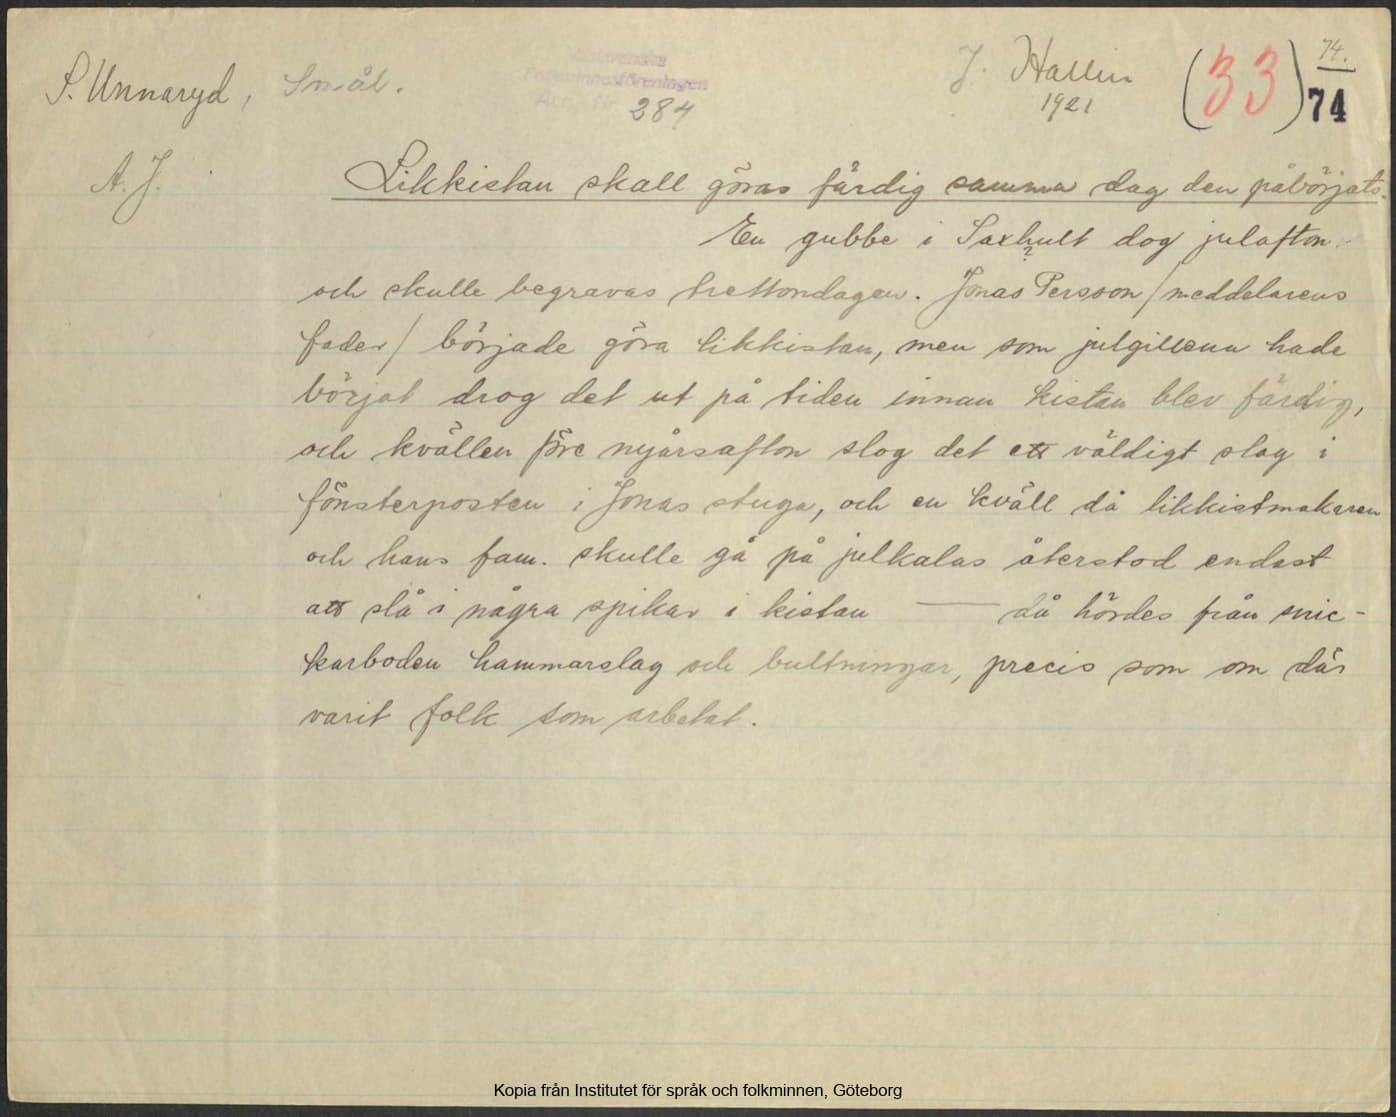 S. Unnaryd, Smål.
Västsvenska
Folkminnesföreningen
Acc. Nr. 284
J. Hallin
1921
(33)
74.
74
A. J.
Likkistan skall göras färdig samma dag den påbörjats.
En gubbe i Saxhult dog julafton
?
och skulle begravas trettondagen. Jonas Persson /meddelarens
fader/ började göra likkistan, men som julgillena hade
börjat drog det ut på tiden innan kistan blev färdig,
och kvällen före nyårsafton slog det ett väldigt slag i
fönsterposten i Jonas stuga, och en kväll då likkistmakaren
och hans fam. skulle gå på julkalas återstod endast
att slå i några spikar i kistan — då hördes från snic-
karboden hammarslag och bultningar, precis som om där
varit folk som arbetat.
Kopia från Institutet för språk och folkminnen, Göteborg